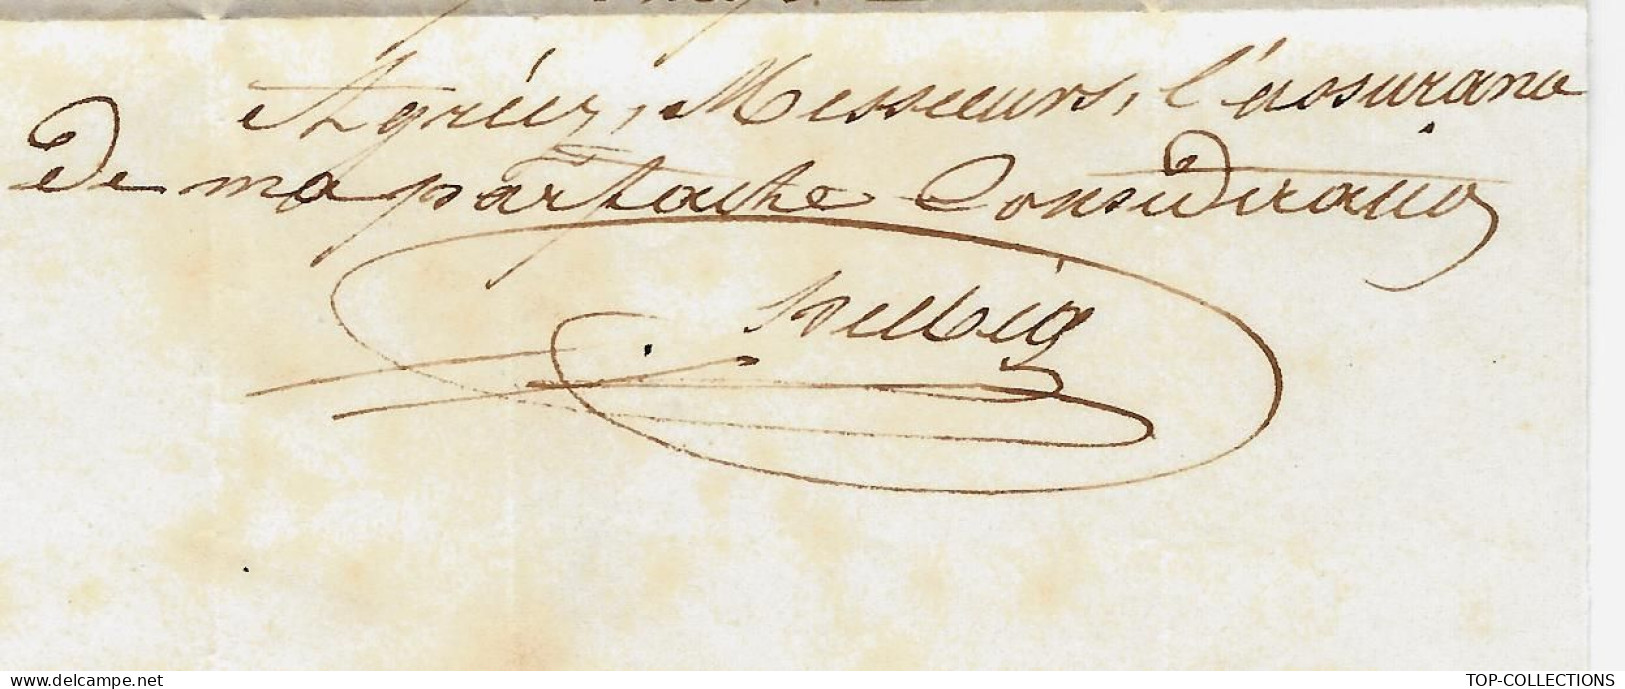 Agréez, Messieurs, l'assurance
de ma parfaite Considération
Helbig
www.delcampe.net
TOP-COLLECTIONS